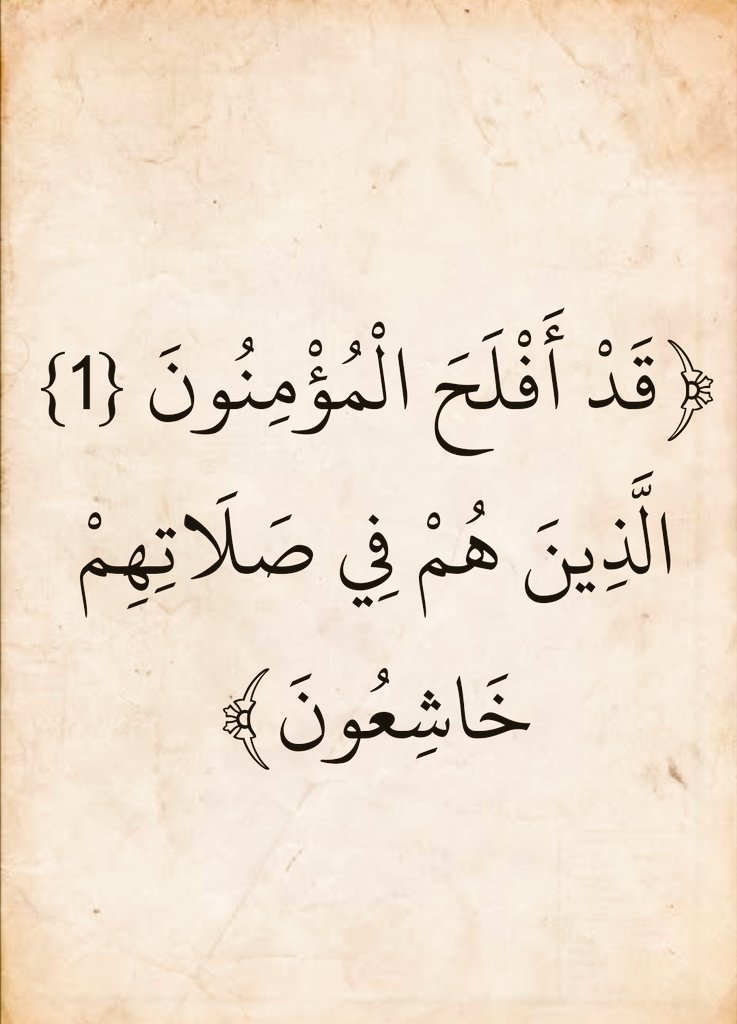 ﴿قَدْ أَفْلَحَ الْمُؤْمِنُونَ {1}
الَّذِينَ هُمْ فِي صَلَاتِهِمْ
خَاشِعُونَ﴾